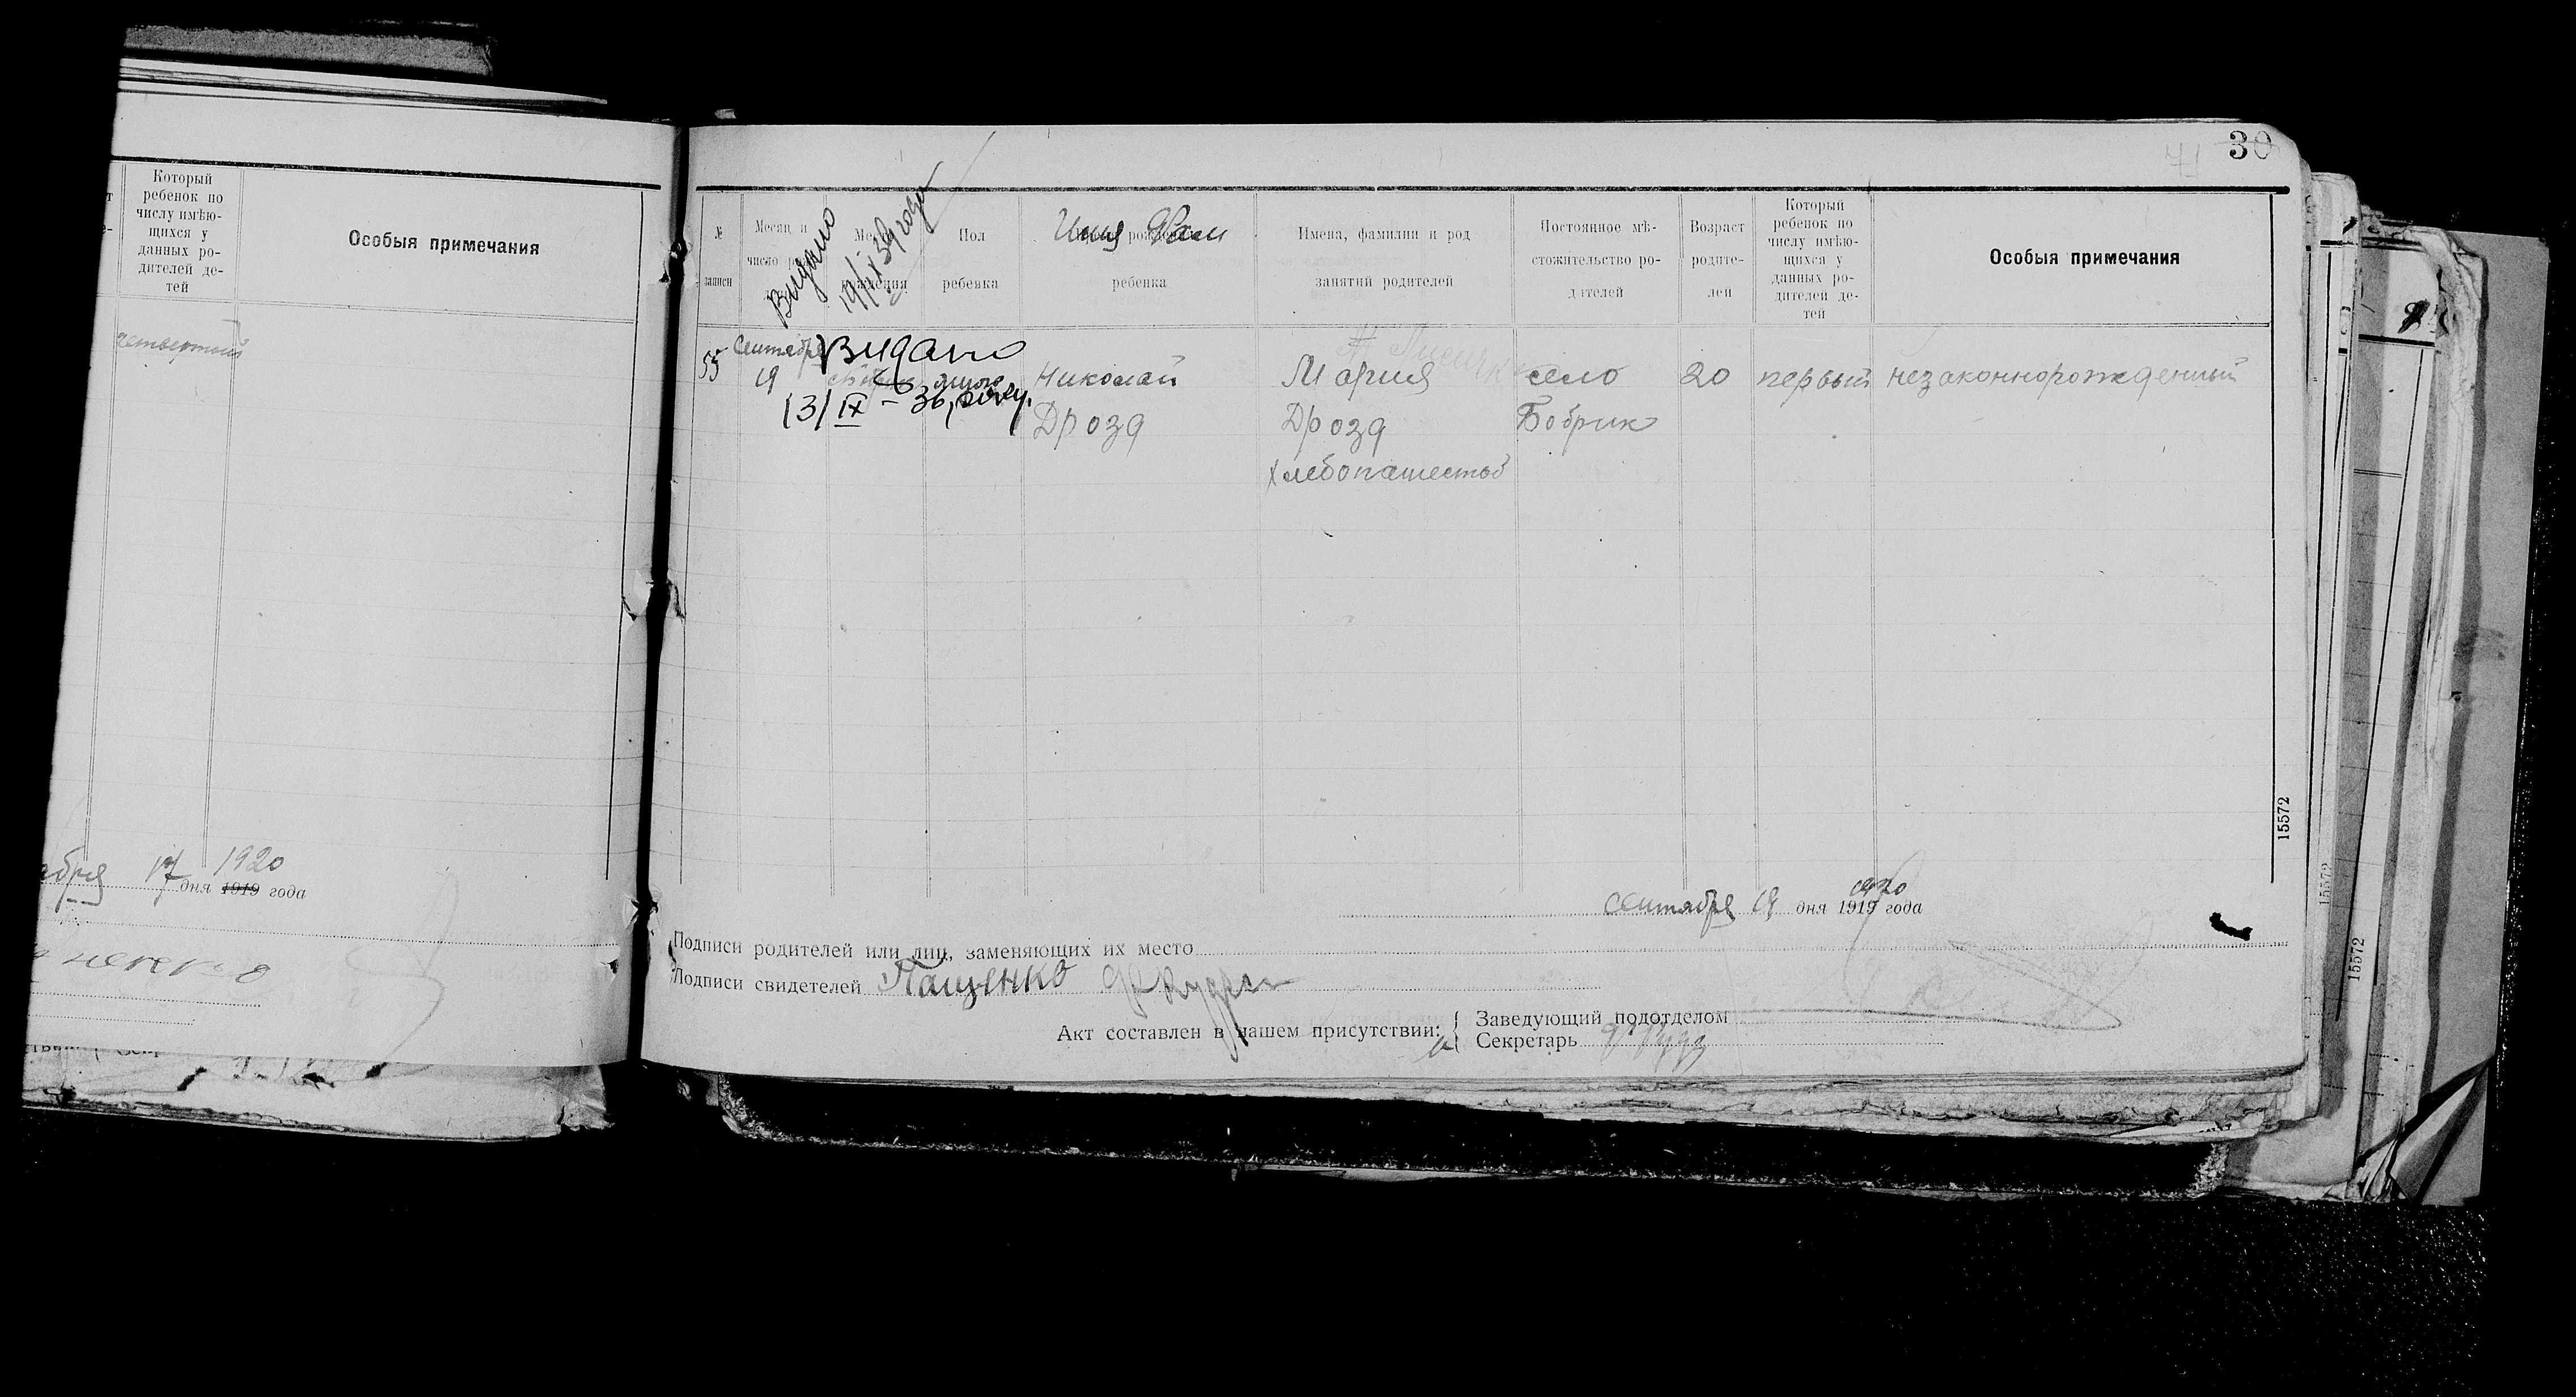 Который
ребенок по
числу имѣю-
щихся у
данных ро-
дителей де-
тей
Особыя примечания
четвертый
абря 17 дня 1919 года
1920
71 30
№
записи
Месяц и
число
Пол
ребенка
Имя Фам
ребенка
Имена, фамилии и род
занятий родителей
Постоянное мѣ-
стожительство ро-
дителей
Возраст
родите-
лей
Который
ребенок по
числу имѣю-
щихся у
данных ро-
дителей де-
тей
Особыя примечания
Видано
19/IX 39 года
55
Сентября
19
Видано
13/IX – 36 року.
Николай
Дрозд
Мария
Дрозд
Хлебопашество
село
Бобрик
20
первый
незаконнорожденный
15572
1920
сентября 19 дня 1919 года
Подписи родителей или лиц, заменяющих их место
Подписи свидетелей Пащенко
Акт составлен в нашем присутствии:
Заведующий подотделом
Секретарь
15572